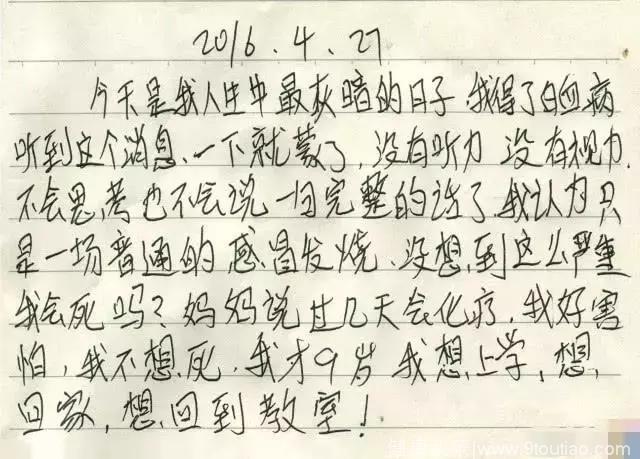 2016.4.27
今天是我人生中最灰暗的日子 我得了白血病
听到这个消息、一下就蒙了，没有听力 没有视力.
不会思考也不会说一句完整的话了.我认为只
是一场普通的感冒发烧、没想到这么严重
我会死吗？妈妈说过几天会化疗，我好害
怕，我不想死，我才9岁 我想上学，想
回家，想回到教室！
www.9toutiao.com